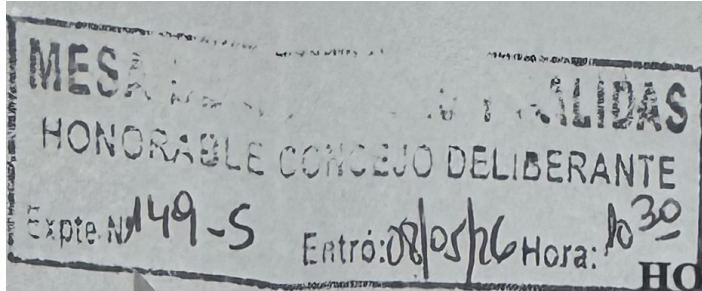 MESA SALIDAS
HONORABLE CONCEJO DELIBERANTE
Expte.Nº 149-S Entró: 08/05/26 Hora: 10 30
HO